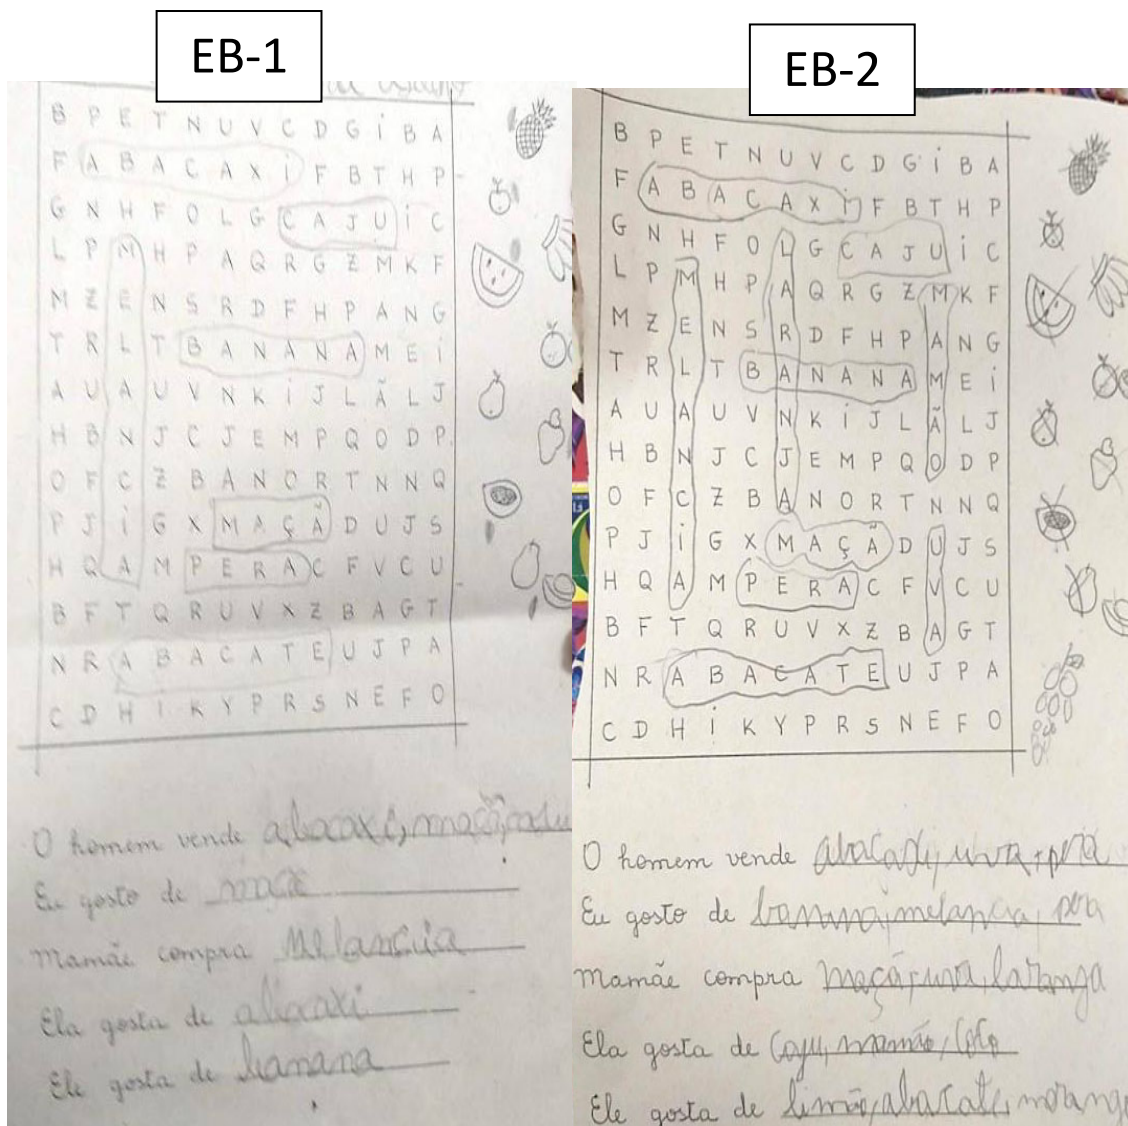 EB-1
B P E T N U V C D G I B A
F A B A C A X I F B T H P
G N H F O L G C A J U I C
L P M H P A Q R G Z M K F
M Z E N S R D F H P A N G
T R L T B A N A N A M E I
A U A U V N K I J L Ã L J
H B N J C J E M P Q O D P
O F C Z B A N O R T N N Q
P J I G X M A Ç Ã D U J S
H Q A M P E R A C F V C U
B F T Q R U V X Z B A G T
N R A B A C A T E U J P A
C D H I K Y P R S N E F O
O homem vende abacaxi, maçã,
Eu gosto de maçã
Mamãe compra Melancia
Ela gosta de abacaxi
Ele gosta de banana
EB-2
B P E T N U V C D G I B A
F A B A C A X I F B T H P
G N H F O L G C A J U I C
L P M H P A Q R G Z M K F
M Z E N S R D F H P A N G
T R L T B A N A N A M E I
A U A U V N K I J L Ã L J
H B N J C J E M P Q O D P
O F C Z B A N O R T N N Q
P J I G X M A Ç Ã D U J S
H Q A M P E R A C F V C U
B F T Q R U V X Z B A G T
N R A B A C A T E U J P A
C D H I K Y P R S N E F O
O homem vende uva, pera
Eu gosto de banana, melancia, pera
Mamãe compra maçã, uva, laranja
Ela gosta de caju, mamão, coco
Ele gosta de limão, abacate, morango